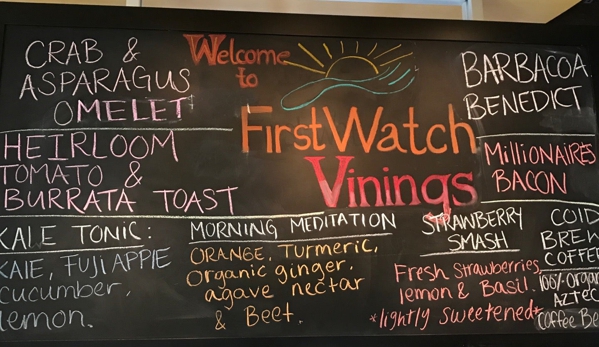 CRAB &
ASPARAGUS
OMELET
HEIRLOOM
TOMATO &
BURRATA TOAST
Welcome
to
First Watch
Vinings
BARBACOA
BENEDICT
Millionaires
BACON
KALE TONIC:
KALE, FUJI APPLE
cucumber,
lemon.
MORNING MEDITATION
ORANGE, Turmeric,
Organic ginger,
agave nectar
& Beet.
STRAWBERRY
SMASH
Fresh Strawberries,
lemon & Basil.
*lightly sweetened*
COLD
BREW
COFFEE
100% Organ
AZTEC
Coffee Be